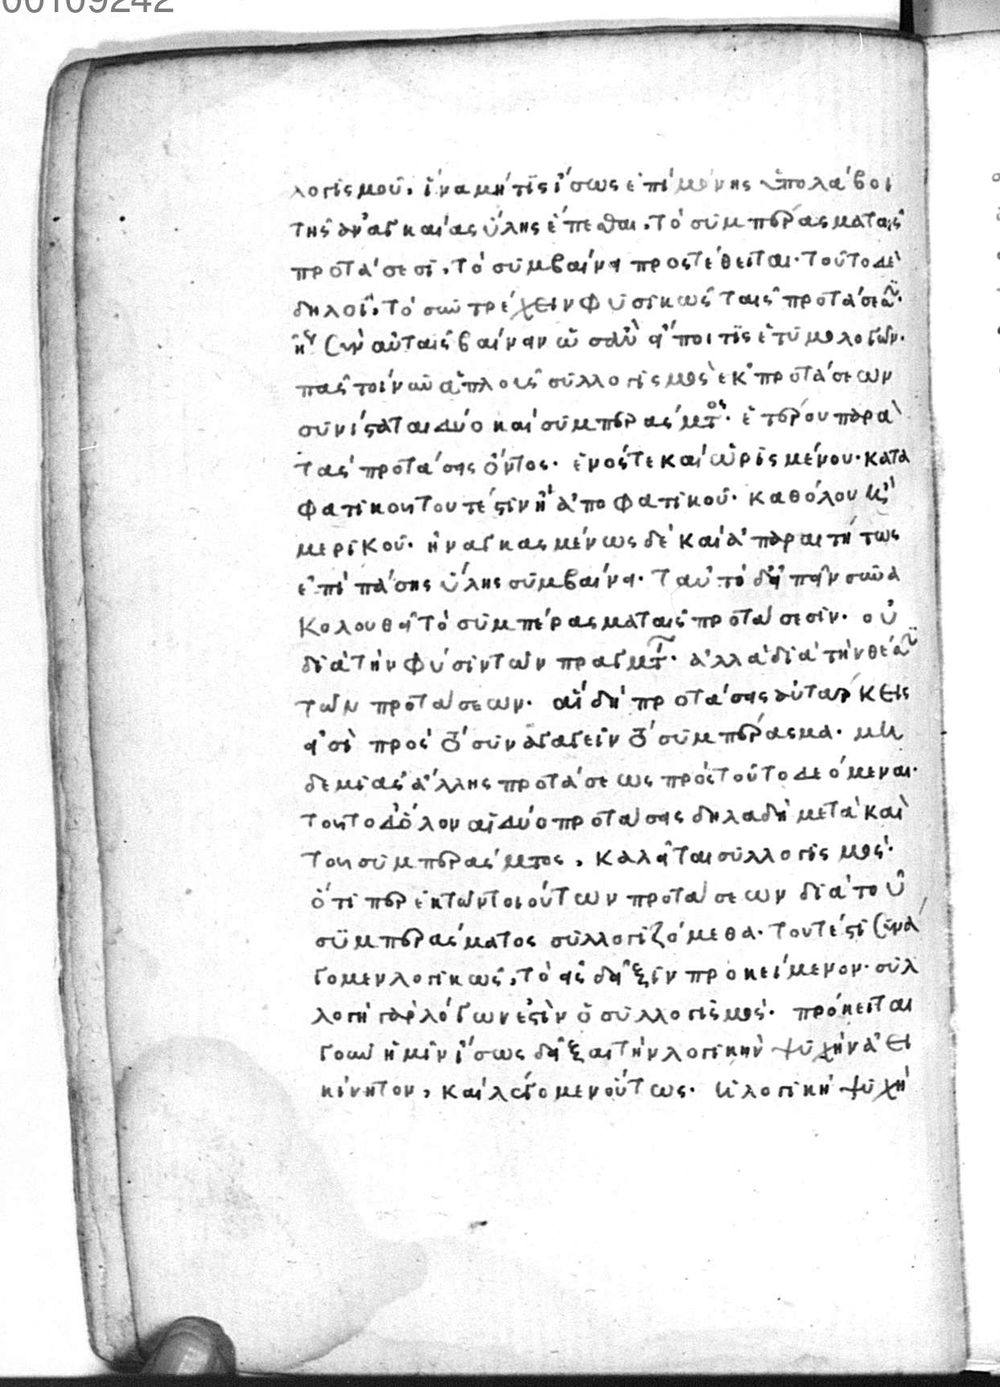 00109242
λογισμοῦ. ἵνα μή τις ἴσως ἐπὶ μόνης ὑπολάβοι
τῆς ἀναγκαίας ὕλης ἕπεσθαι, τὸ συμπέρασμα ταῖς
προτάσεσι, τὸ συμβαίνει προστέθειται· τοῦτο δὲ
δηλοῖ, τὸ συντρέχειν φυσικῶς ταῖς προτάσεσιν·
ἢ σὺν αὐταῖς βαίνειν ὡσανεὶ εἴποι τις ἐτυμολογῶν.
πᾶς τοίνυν ἁπλοῦς συλλογισμὸς ἐκ προτάσεων
συνίσταται δύο καὶ συμπεράσματος· ἑτέρου παρὰ
τὰς προτάσεις ὄντος· ἑνός τε καὶ ὡρισμένου· κατα
φατικοῦ τουτέστιν ἢ ἀποφατικοῦ· καθόλου ἢ
μερικοῦ· ἠναγκασμένως δὲ καὶ ἀπαραιτήτως
ἐπὶ πάσης ὕλης συμβαίνει· ταὐτὸ δὴ πᾶν συνα
κολουθεῖ τὸ συμπέρασμα ταῖς προτάσεσιν· οὐ
διὰ τὴν φύσιν τῶν πραγμάτων· ἀλλὰ διὰ τὴν θέσιν
τῶν προτάσεων· αἳ δὴ προτάσεις αὐτάρκεις
εἰσὶ πρὸς τὸ συναγαγεῖν τὸ συμπέρασμα· μη
δεμιᾶς ἄλλης προτάσεως πρὸς τοῦτο δεόμεναι·
τοῦτο δ' ὅλον αἱ δύο προτάσεις δηλαδὴ μετὰ καὶ
τοῦ συμπεράσματος, καλεῖται συλλογισμός·
ὅτι περ ἐκ τῶν τοιούτων προτάσεων διὰ τοῦ
συμπεράσματος συλλογιζόμεθα· τουτέστι συνά
γομεν λογικῶς, τὸ εἰς δεῖξιν προκείμενον· συλ
λογὴ γὰρ λόγων ἐστὶν ὁ συλλογισμός· πρόκειται
γοῦν ἡμῖν ἴσως δεῖξαι τὴν λογικὴν ψυχὴν ἀει
κίνητον, καὶ λέγομεν οὕτως· ἡ λογικὴ ψυχὴ